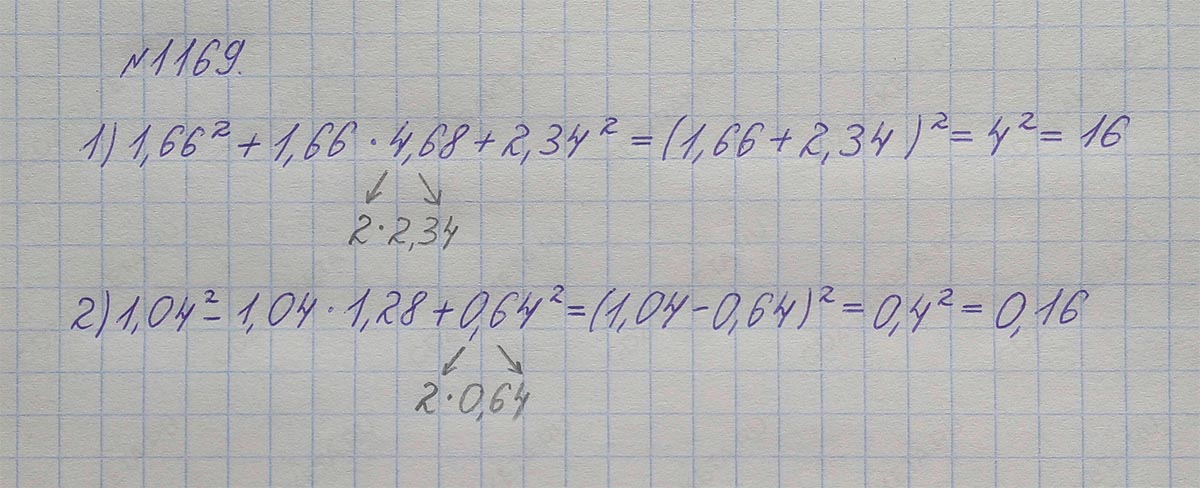 №1169.
1) 1,66² + 1,66 · 4,68 + 2,34² = (1,66 + 2,34)² = 4² = 16
2 · 2,34
2) 1,04² - 1,04 · 1,28 + 0,64² = (1,04 - 0,64)² = 0,4² = 0,16
2 · 0,64